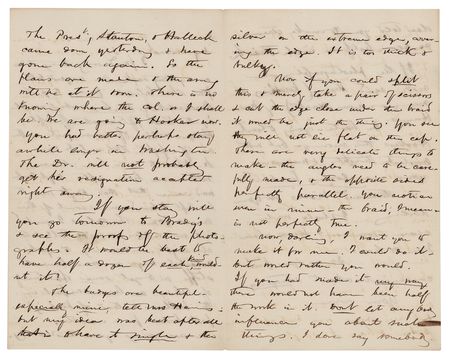 The Prest, Stanton, & Halleck
came down yesterday & have
gone back again. So the
plans are made & the army
will be at it soon. There is no
knowing where the col. or I shall
be. We are going to Hooker now.
You had better perhaps stay
awhile longer in Washington.
The Dr. will not probably
get his resignation accepted
right away.
If you stay will
you go tomorrow to Brady's
& see the proof of the photo-
graphs. It would be best to
have half a dozen of each wouldn't
it?
The badges are beautiful-
especially mine, tell Mrs
but my idea was best after all
that is to have to single & the
silver on the extreme edge, cover-
ing the edge. It is too thick &
bulky.
Now if you could split
this & merely take a pair of scissors
& cut the edge close under the braid
it would be just the thing. You see
they will not lie flat on the cap.
These are very delicate things to
make - the angles need to be care-
fully made, & the opposite sides
perfectly parallel. You notice
even in mine - the braid, I mean -
is not perfectly true.
Now, darling, I want you to
make it for me. I could do it -
but would rather you would.
If you had made it my way
there would not have been half
the work in it. Don't let any body
influence you about such
things. I dare say somebody